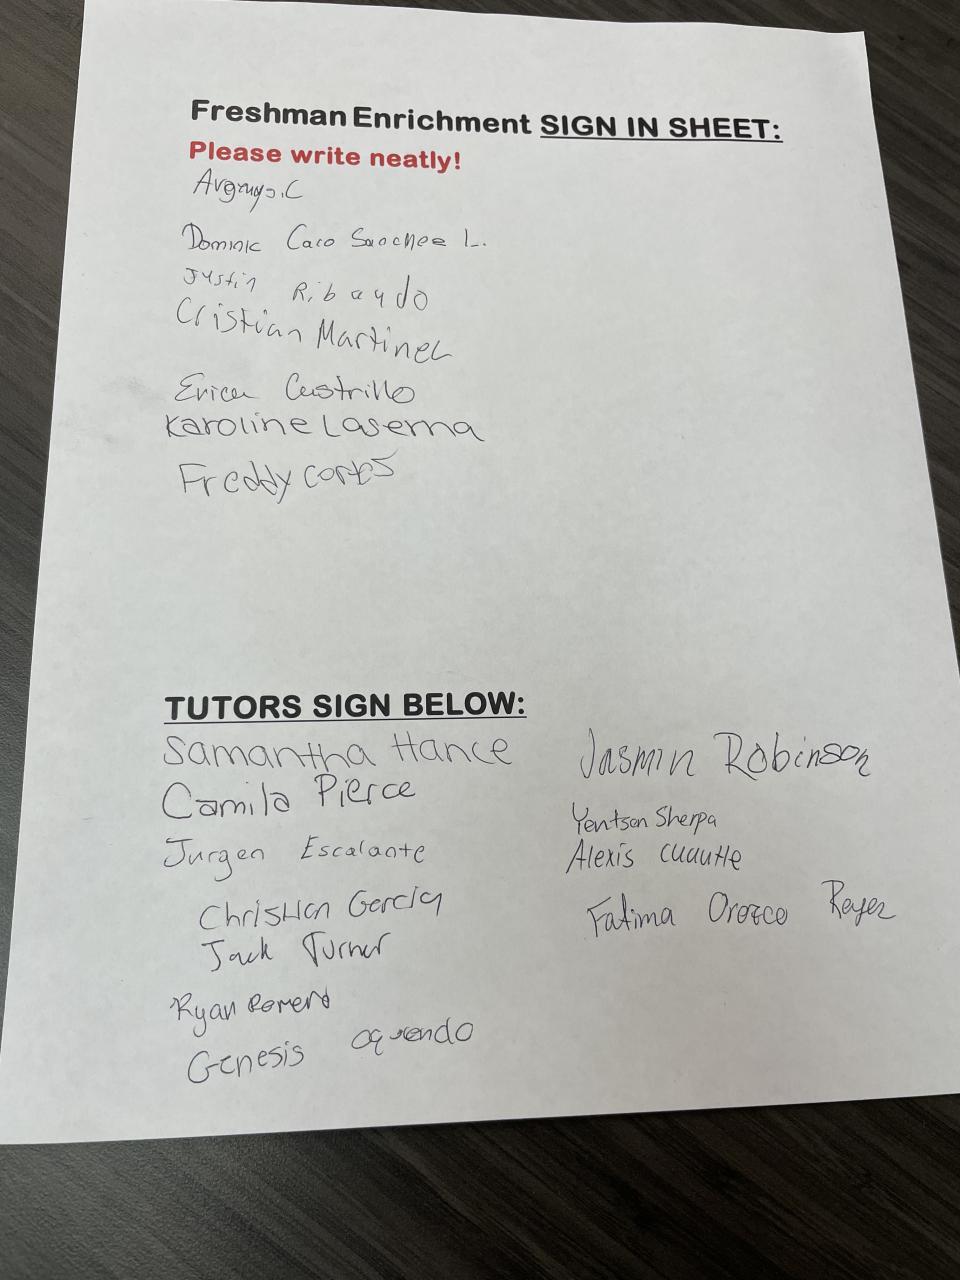 Freshman Enrichment SIGN IN SHEET:
Please write neatly!
Dominic Caco Sanchez L.
Justin Ribaudo
Cristian Martinez
Erica Castrillo
Karoline Laserna
Freddy cortes
TUTORS SIGN BELOW:
Samantha Hance
Camila Pierce
Jurgen Escalante
Christian Garcia
Jack Turner
Ryan Romero
Genesis oquendo
Jasmin Robinson
Yentsen Sherpa
Alexis Cuautle
Fatima Orozco Reyes